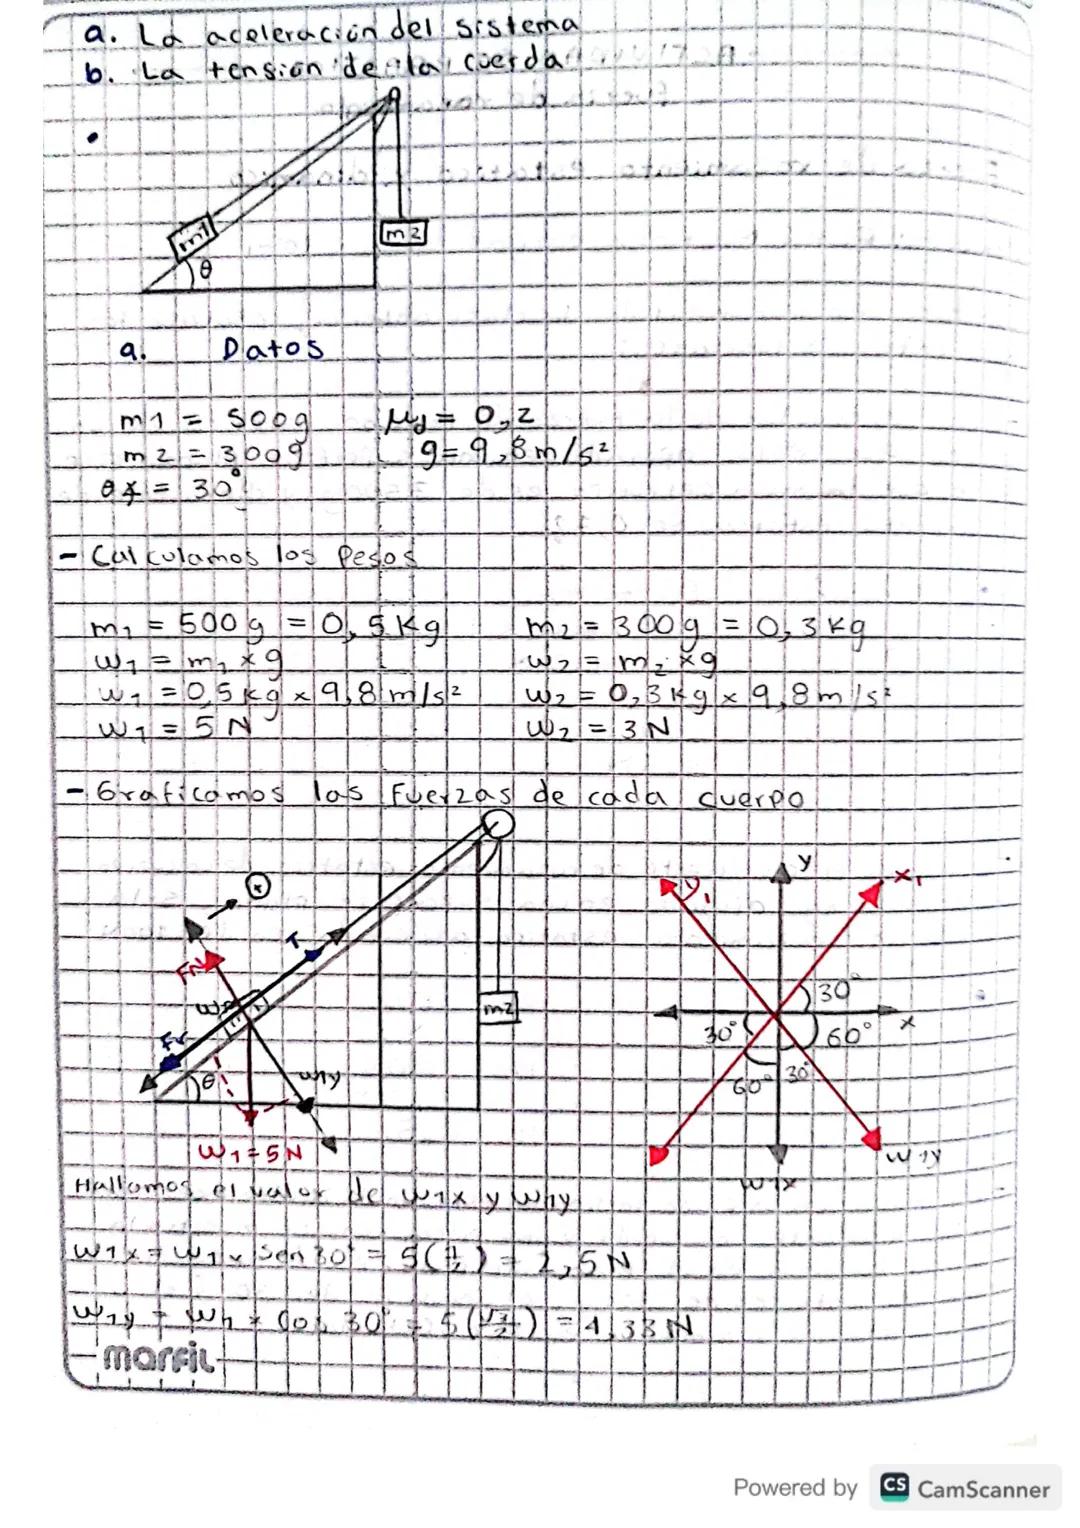 a. La aceleración del sistema
b. La tensión de la cuerda
m1
m2
θ
a. Datos
m1 = 500g μd = 0,2
m2 = 300g g= 9,8m/s²
θ∡ = 30°
- Calculamos los Pesos
m₁ = 500g = 0,5Kg m₂ = 300g = 0,3Kg
w₁ = m₁ x g w₂ = m₂ x g
w₁ = 0,5kg x 9,8 m/s² w₂ = 0,3Kg x 9,8m/s²
w₁ = 5 N w₂ = 3 N
- Graficamos las Fuerzas de cada cuerpo
x
T
FN
Fr
θ
w1y
W₁=5N
m2
y
y₁
x₁
30°
x
30°
60°
60°
30°
w1y
w1x
Hallamos el valor de w1x y w1y
w1x = w1 x Sen 30° = 5(1/2) = 2,5N
w1y = w1 x Cos 30° = 5(√3/2) = 4,33N
marfil
Powered by CS CamScanner